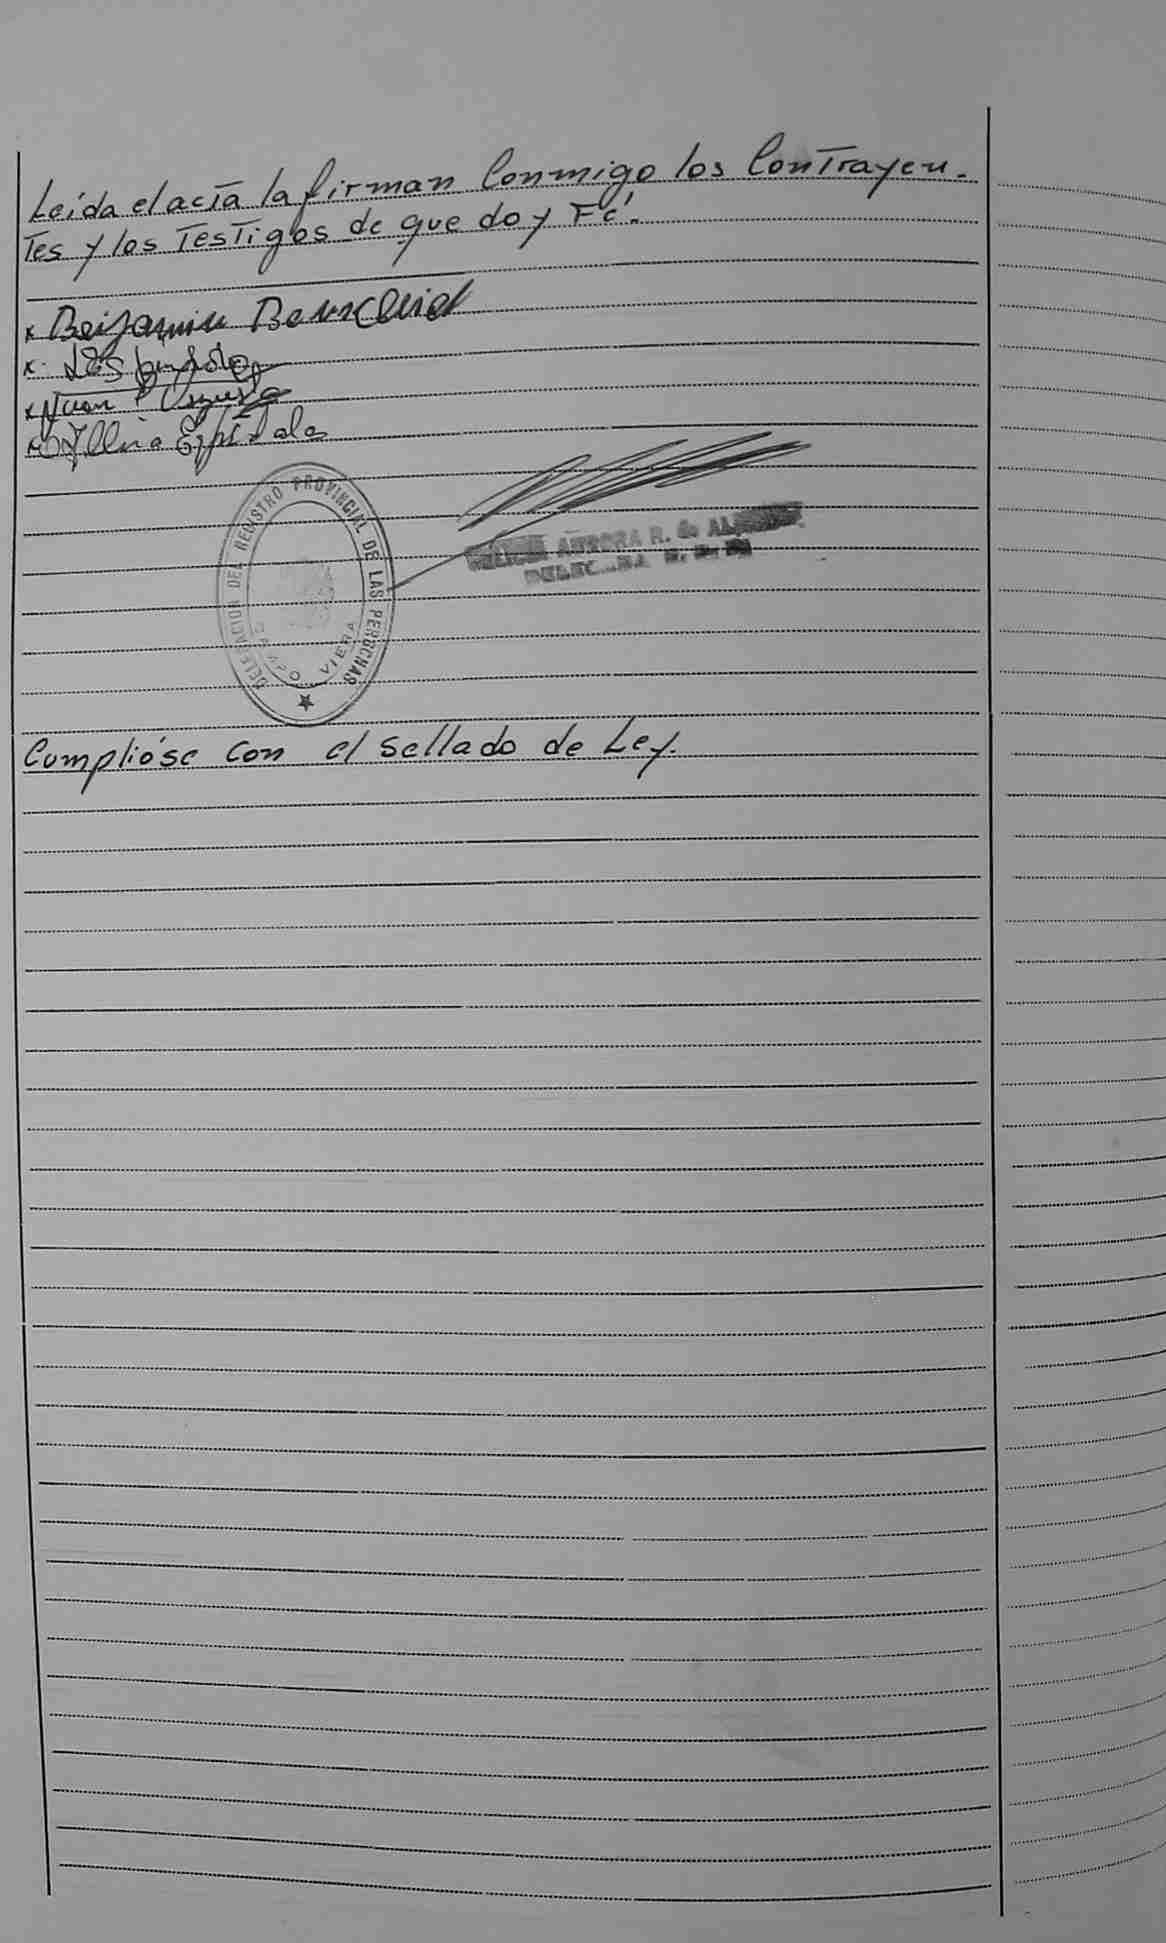 Leída el acta la firman Conmigo los Contrayen-
tes y los Testigos de que doy Fé.
x Benjamin
x
x Juan
x Espindola
DELEGACION DEL REGISTRO PROVINCIAL DE LAS PERSONAS
CAMPO VIERA
AURORA R. de
Cumplióse con el sellado de Ley.